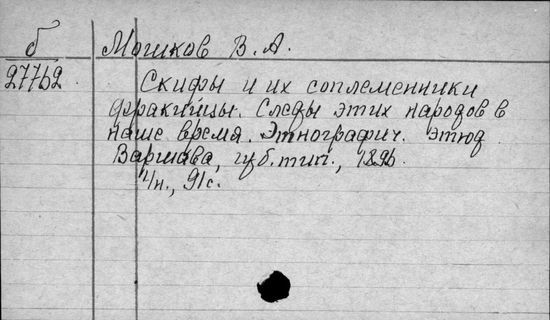 б Мошков В.А.
27762
Скифы и их соплеменники
фракийцы. Следы этих народов в
наше время. Этнографич. этюд
Варшава, губ. тип., 1896.
1/н., 91с.